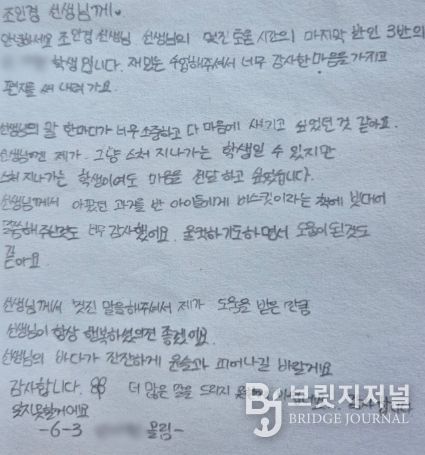 조인경 선생님께
안녕하세요 조인경 선생님 선생님의 멋진 도움 시간의 마지막 반인 3반의
학생 입니다. 재밌는 수업해주셔서 너무 감사한 마음을 가지고
편지를 써 내려 가요.
선생님의 말 한마디가 너무 소중하고 다 마음에 새기고 싶었던 것 같아요.
선생님껜 제가 그냥 스쳐 지나가는 학생일 수 있지만
스쳐 지나가는 학생이여도 마음을 전달 하고 싶었습니다.
선생님께서 아팠던 과거를 반 아이들에게 비스킷이라는 책에 빗대어
말씀해주신것도 너무 감사했어요. 울컥하기도하면서 도움이 된것도
같아요
선생님께서 멋진 말을해주셔서 제가 도움을 받은 만큼
선생님이 항상 행복하셨으면 좋겠어요.
선생님의 바다가 잔잔하게 윤슬과 피어나길 바랄게요
감사합니다. 더 많은 말을 드리지
잊지못할게이요
-6-3 올림-
브릿지저널
BRIDGE JOURNAL